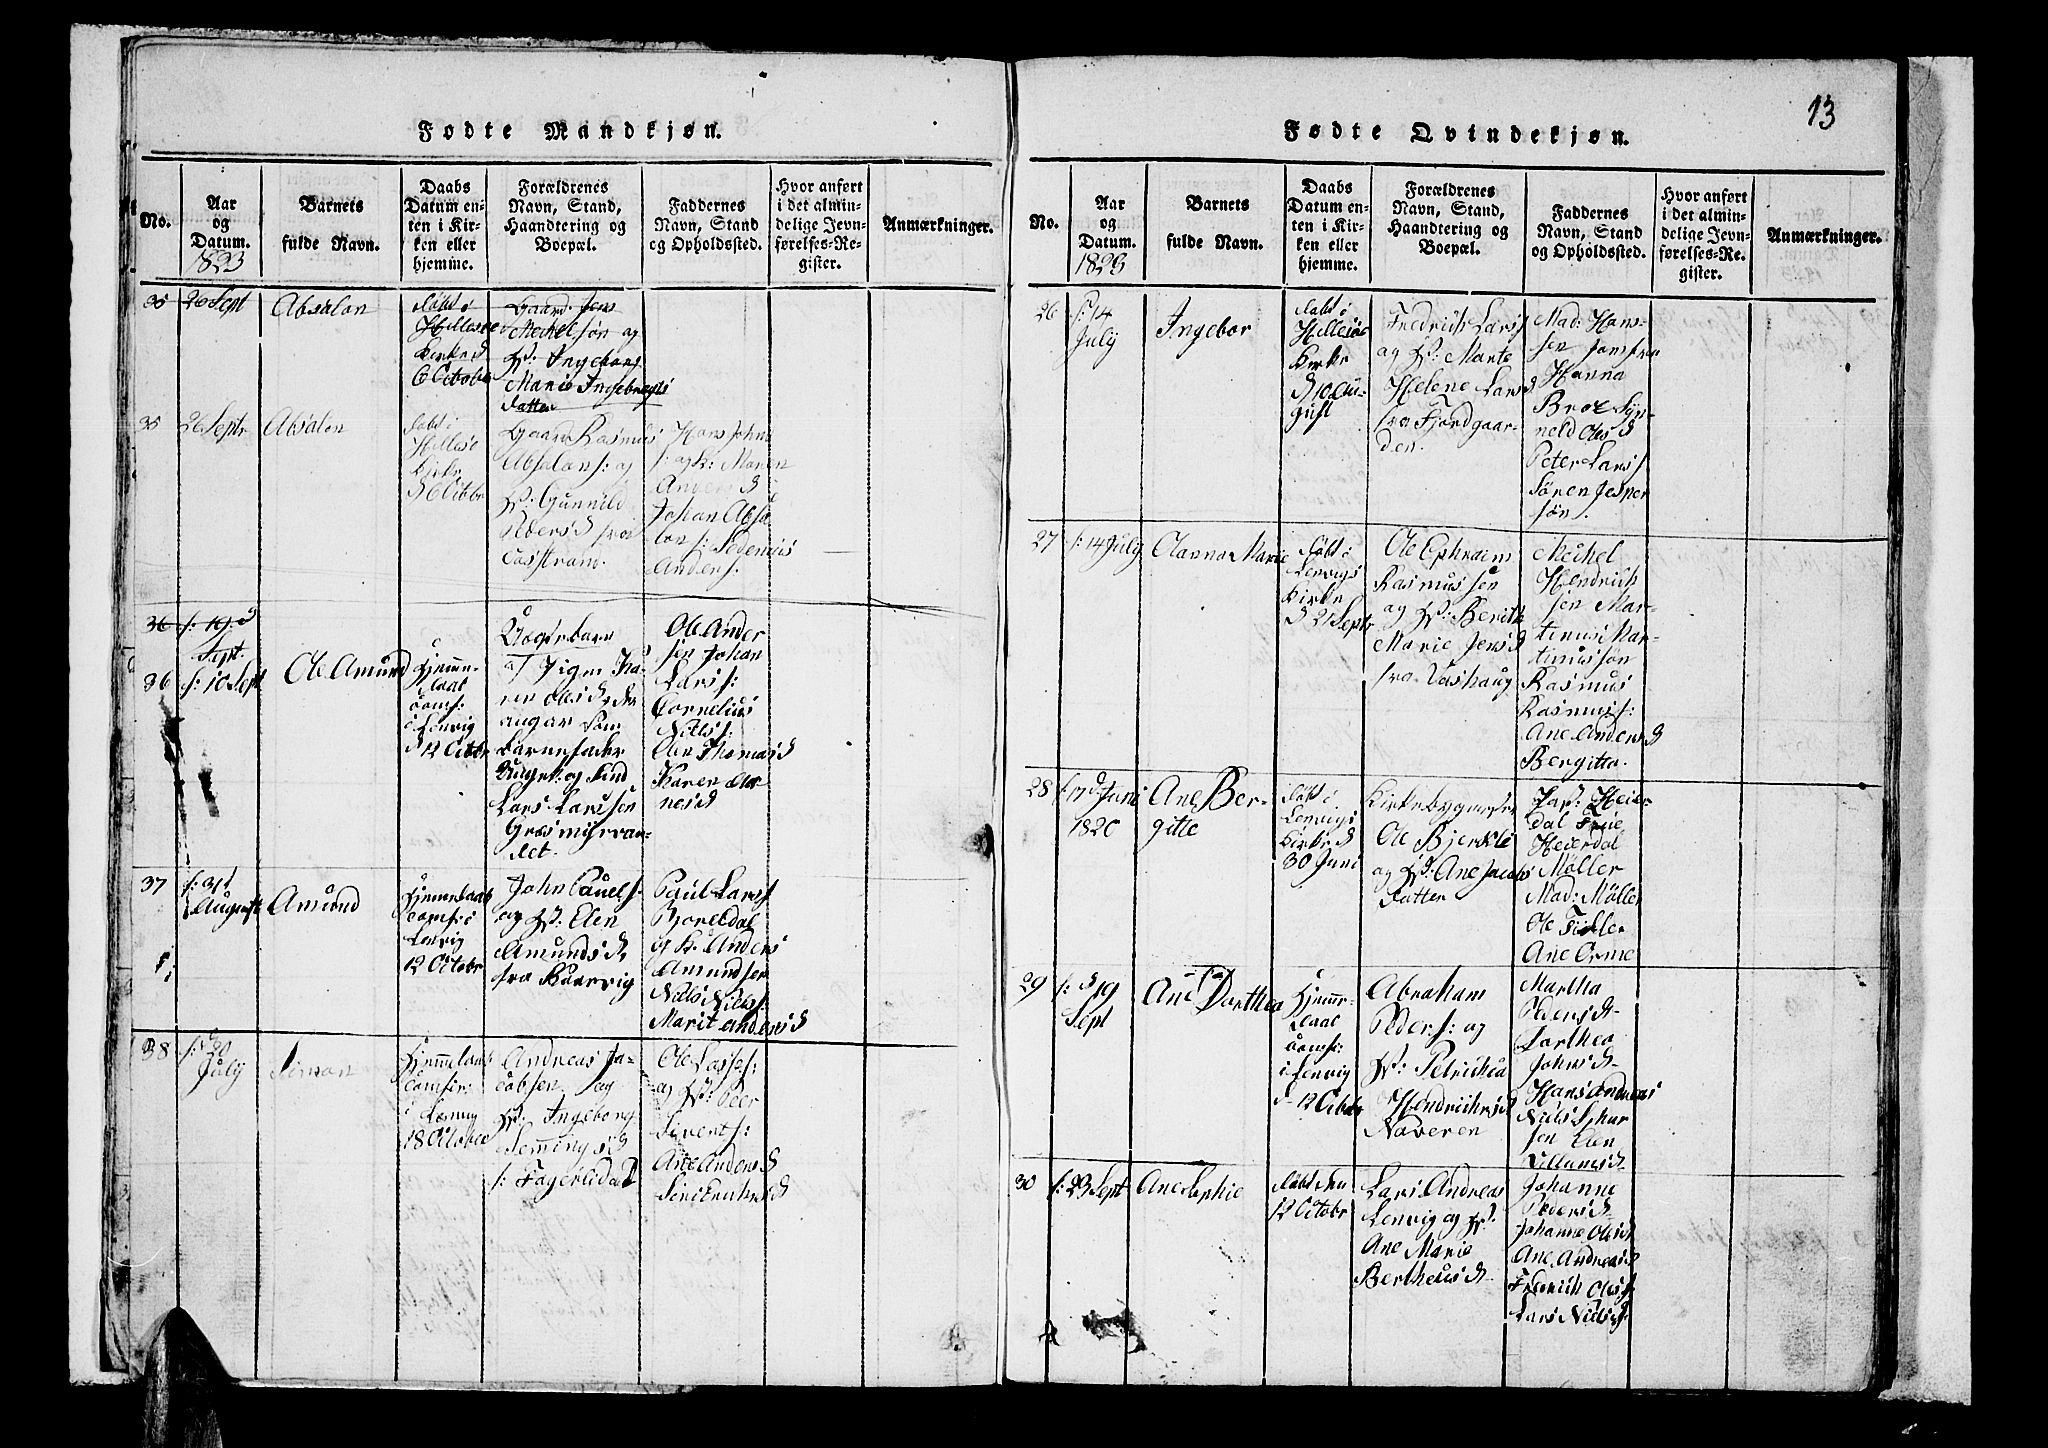 13
Fødte Mandkjøn.
No.
Aar
og
Datum.
1823
Barnets
fulde Navn.
Daabs
Datum en-
ten i Kir-
ken eller
hjemme.
Forældrenes
Navn, Stand,
Haandtering og
Boepæl.
Faddernes
Navn, Stand
og Opholdssted.
Hvor anført
i det almin-
delige Jevn-
førelses-Re-
gister.
Anmærkninger.
35
26 Sept
Absalon
døbt i
Kirke d
6 Octobr
Gaard. Jens
Meckelsøn og
H. Ingeborg
Marie Ingebregts
datter
35
26 Septr
Absalon
døbt i
Hillesø
Kirke
d 6 Octbr
Gaardm Rasmus
Absalons: og
H. Gunnild
fra
Hans Johns
s: og K: Maren
Anders D
Johan Absa
lon s:
Anders.
36
f: 19 d
Sept.
36
f: 10 Sept
Ole Amund
Hjemme-
daab
comf:
i Lenvig
d 12 Octobr
Uægte barn
af Pigen Ka-
ren Ols D
angav som
Barnefader
Lars Larssen
Græsmyrvan-
det.
Ole Ander
sen Johan
Lars s:
Cornelius
Nils s:
Elen Thomas D
Karen
nes D
37
f: 31
August
Amund
Hjemmedaab
comf: i
Lenvig
12 Octobr
John Pauels.
og H. Elen
Amunds D
fra
Paul Lars s
og K: Anders
Amundsen
Nils Nils s:
Marit Anders D
38
f: 20
July
Simon
Hjemmedaab
comfir:
i Lenvig
18 Octobr
Andreas Ja-
cobsen og
H. Ingeborg
Flemmings D
f: Fagerlidal
Ole Lasses:
og H. Peer
Siverts:
Ane Anders D
Siri
Fødte Qvindekjøn.
No.
Aar
og
Datum.
1823
Barnets
fulde Navn.
Daabs
Datum en-
ten i Kir-
ken eller
hjemme.
Forældrenes
Navn, Stand,
Haandtering og
Boepæl.
Faddernes
Navn, Stand
og Opholdssted.
Hvor anført
i det almin-
delige Jevn-
førelses-Re-
gister.
Anmærkninger.
26
f: 14
July
Ingebor
døbt i
Hillesøe
Kirke
d 10 Au-
gust
Fredrich Lars s
og H: Marte
Helene Lars D
fra Fjordgaar-
den.
Mad: Hans-
sen Jomfru
Hanna
Broe Syn-
neld Ols D
Peter Lars s
Søren Jesper
søn.
27
f: 14 July
Hanna Marie
døbt i
Lenvigs
Kirke
d 21 Septr
Ole Ephraim
Rasmussen
og H: Berith
Marie Jens D
fra Vashaug
Meikel
Hendrich
sen Mar-
tinus Mar-
tinussøn
Rasmus
Rasmus s:
Ane Anders D
Bergitta.
28
f 17 d Juni
1820
Ane Ber-
gitte
døbt i
Lenvigs
Kirke d
30 Juni
Ole Bjerkli
og H. Ane Jacobs
datter
Heier
dal Frue
Heierdal
Møller
Mad: Møller
Ole
Ane Orme
29
f: d 19
Sept
Ane Dorthea
Hjemme-
daab
comf:
i Lenvig
d 12 Octobr
Abraham
Peders: og
H. Petrikea
Hendrichs D
Naveren
Martha
Peders D
Dorthea
Johns D
Hans Andreas
Nils
sen Elen
30
f: 23 Sept
Ane Sophie
12 Octobr
Lars Andreas
Lenvig og H.
Ane Marie
Bertheus D
Johanne
Peders D
Johanne Ols D
Ane Andreas D
Fredrich Ols s
Lars Nils s